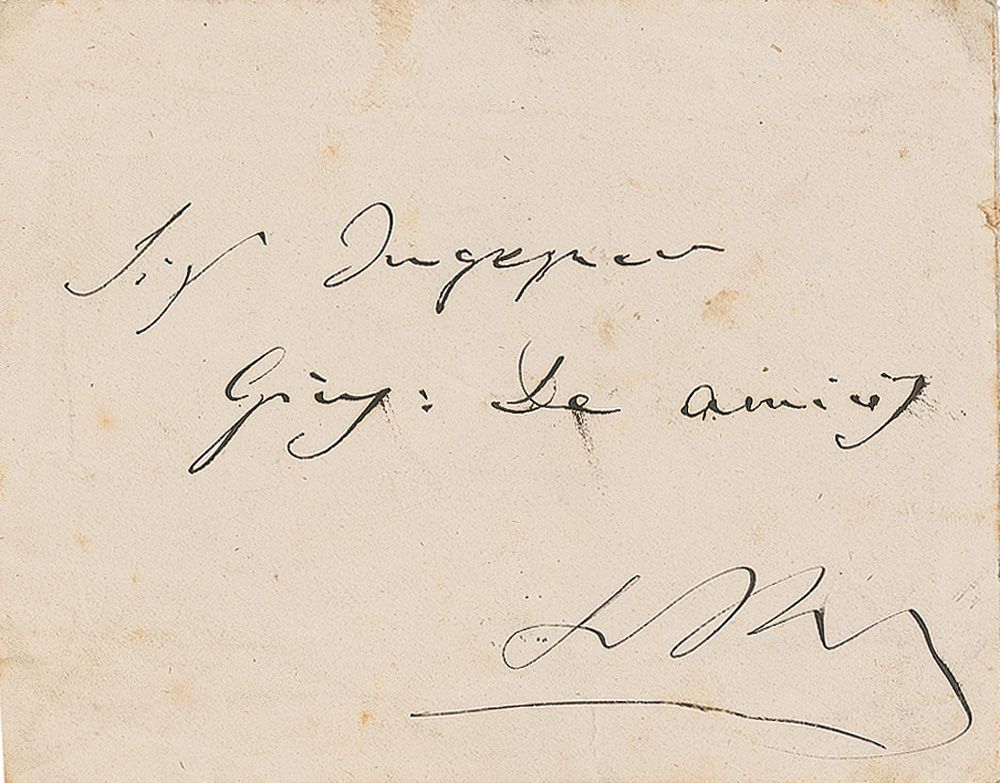 Sig Ingegner
Gius: De Amicis